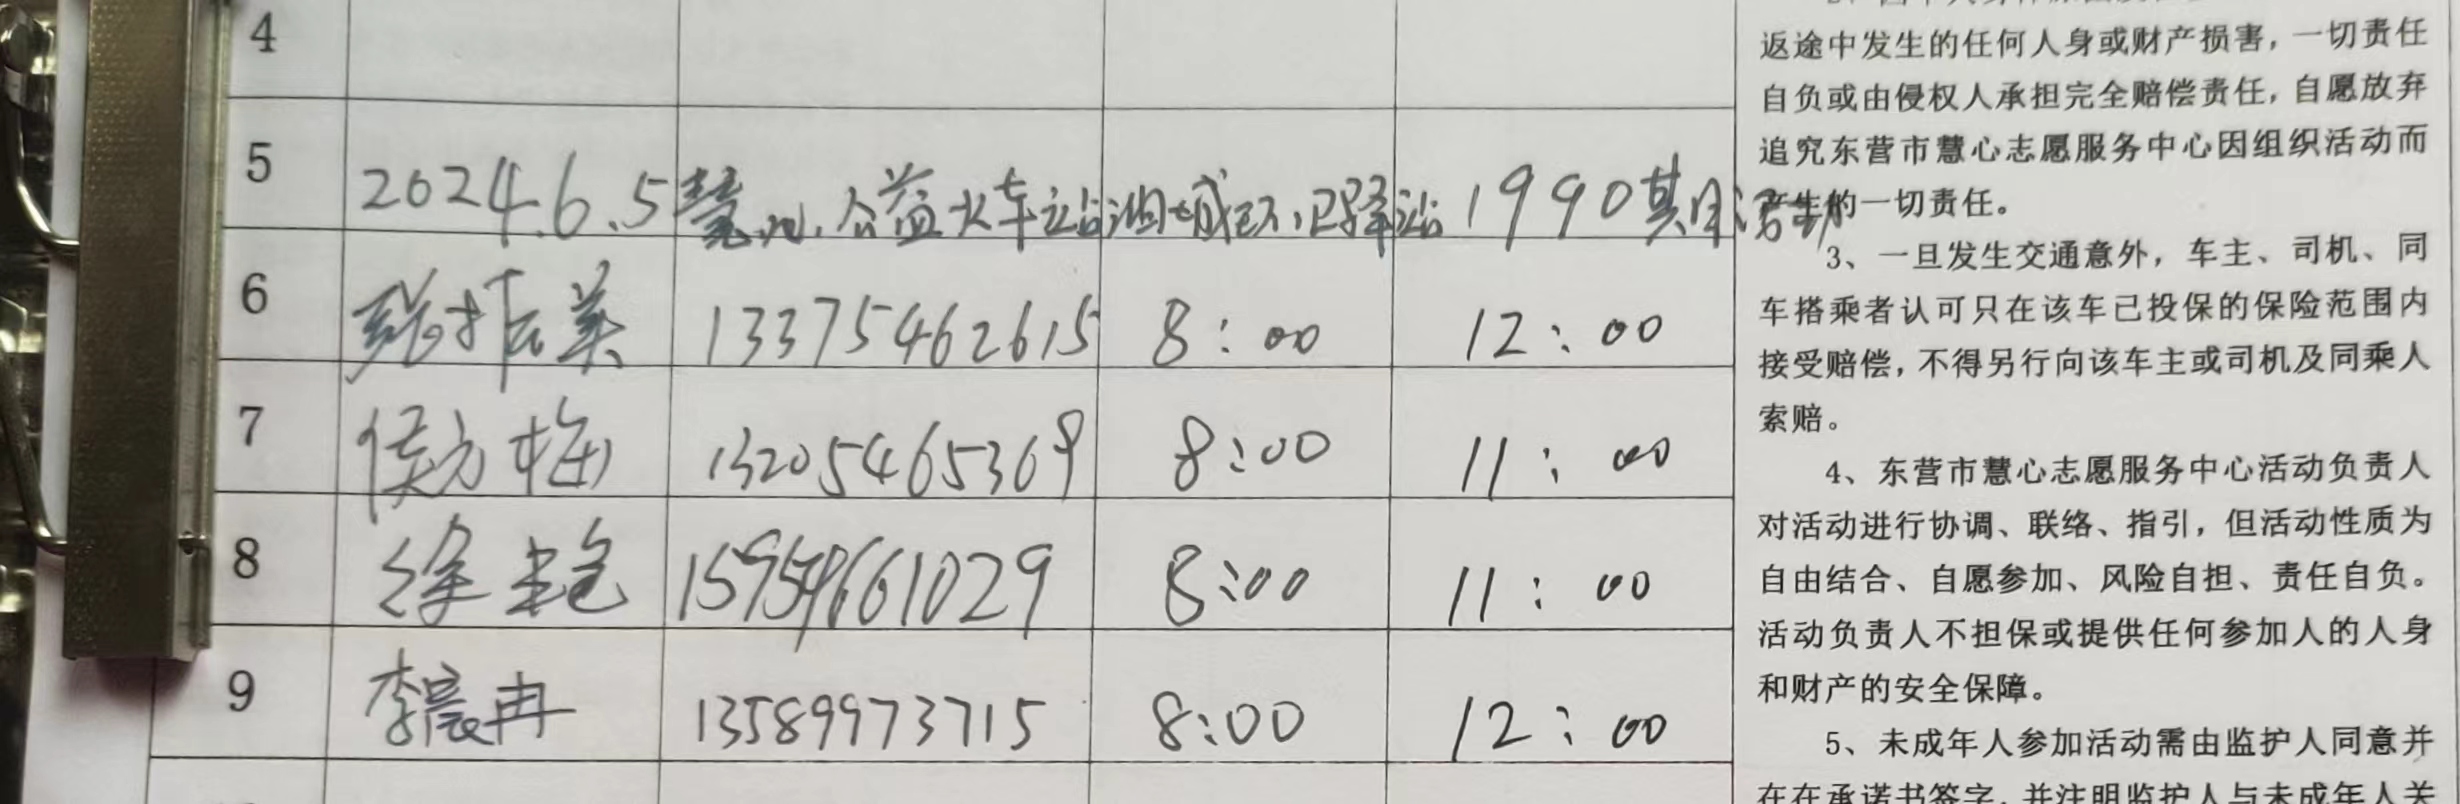 4
5 2024.6.5 慧心公益火车站 1990期活动
6 美 13375462615 8:00 12:00
7 侯方梅 13205465369 8:00 11:00
8 徐艳 15954661029 8:00 11:00
9 李晨冉 13589973715 8:00 12:00
返途中发生的任何人身或财产损害，一切责任
自负或由侵权人承担完全赔偿责任，自愿放弃
追究东营市慧心志愿服务中心因组织活动而
产生的一切责任。
3、一旦发生交通意外，车主、司机、同
车搭乘者认可只在该车已投保的保险范围内
接受赔偿，不得另行向该车主或司机及同乘人
索赔。
4、东营市慧心志愿服务中心活动负责人
对活动进行协调、联络、指引，但活动性质为
自由结合、自愿参加、风险自担、责任自负。
活动负责人不担保或提供任何参加人的人身
和财产的安全保障。
5、未成年人参加活动需由监护人同意并
在在承诺书签字，并注明监护人与未成年人关